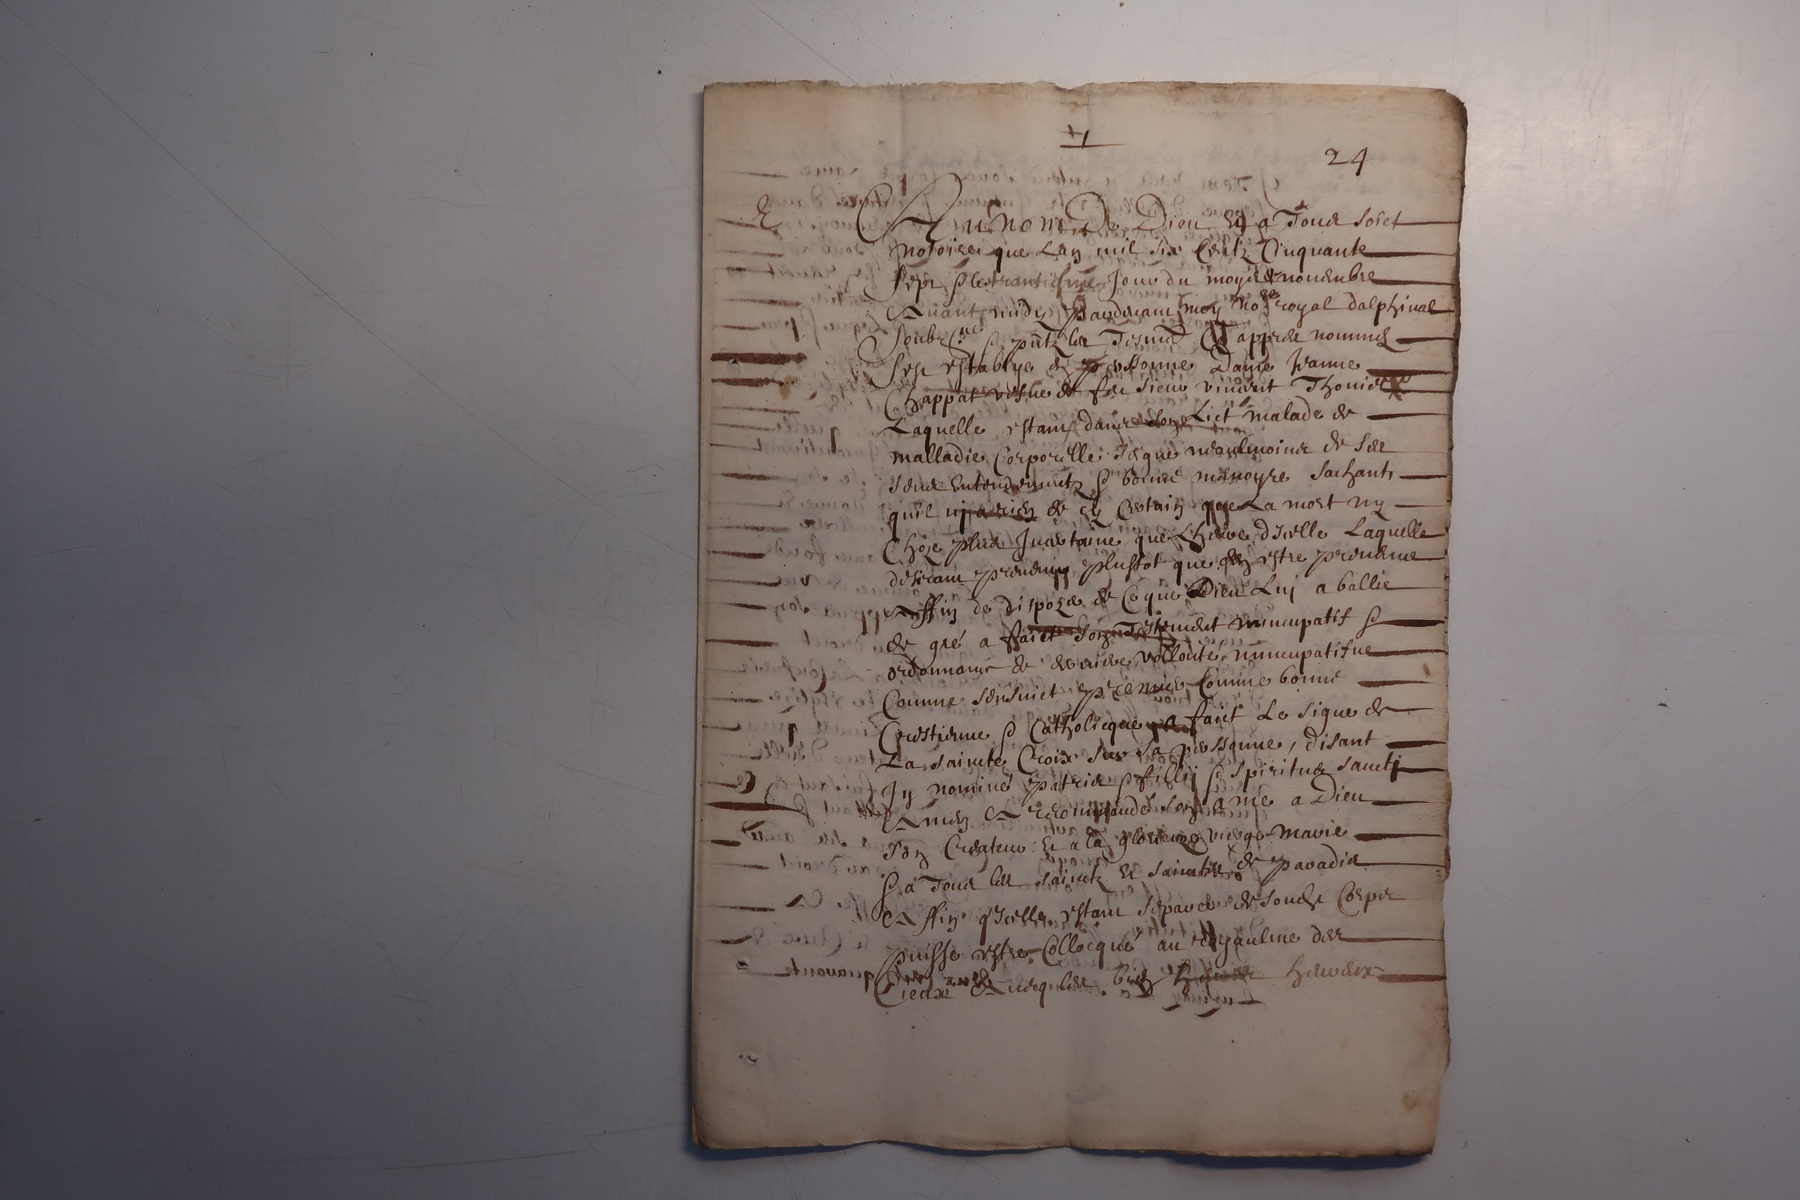 24
Au nom De Dieu et a Tous soict
Notoire que Lan mil six Centz Cinquante
sept & le trantiesme Jour du moys de novembre
Avant midy Pardevant moy No^re royal dalphinal
soubz^ne & pntz les Tesmo^s appres nommes
sest establye en personne Dame Jeanne
Chappat vefue de feu sieur vincent Thonier
Laquelle estant dans son Lict malade de
malladie Corporelle Jacque neantmoins de ses
sens entendementz & bonne memoyre sachant
quil ny a rien de sy Certain que La mort ny
Choze plus Incertaine que Lheure dicelle Laquelle
desirant prevenir plustot que den estre prevenue
Affin de dispozer de Ce que Dieu Luy a ballie
de gré a faict son Testement nuncupatif &
ordonnance de derniere vollonté nuncupatifve
Comme sensuict premier Comme bonne
Crestienne & Catholicque a faict Le signe de
La saincte Croix sur sa personne, disant
In nomine Patris & fillij & spiritus sancti
Amen A recommandé son ame a Dieu
son Createur et a la glorieuze vierge Marie
& a Tous les sainctz et sainctes de paradis
Affin qicelle estant separee de son Corps
puisse estre Collocqué au royaulme des
Cieux Ausquelz bien heureux